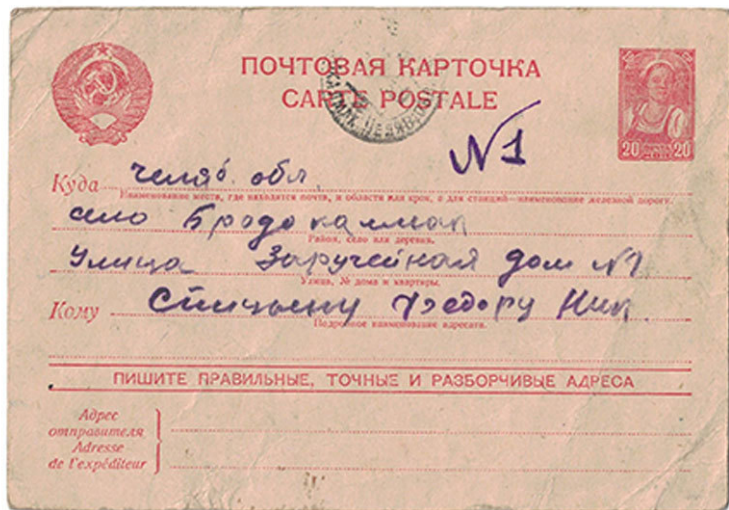 ПОЧТОВАЯ КАРТОЧКА
CARTE POSTALE
20 20
№1
Куда Челяб. обл
Наименование места, где находится почта, и области или края, а для станций—наименование железной дороги.
село Бродокалмак
Район, село или деревня.
Улица Заручейная дом №1
Улица, № дома и квартиры.
Кому Федору Ник.
Подробное наименование адресата.
ПИШИТЕ ПРАВИЛЬНЫЕ, ТОЧНЫЕ И РАЗБОРЧИВЫЕ АДРЕСА
Адрес
отправителя
Adresse
de l'expéditeur